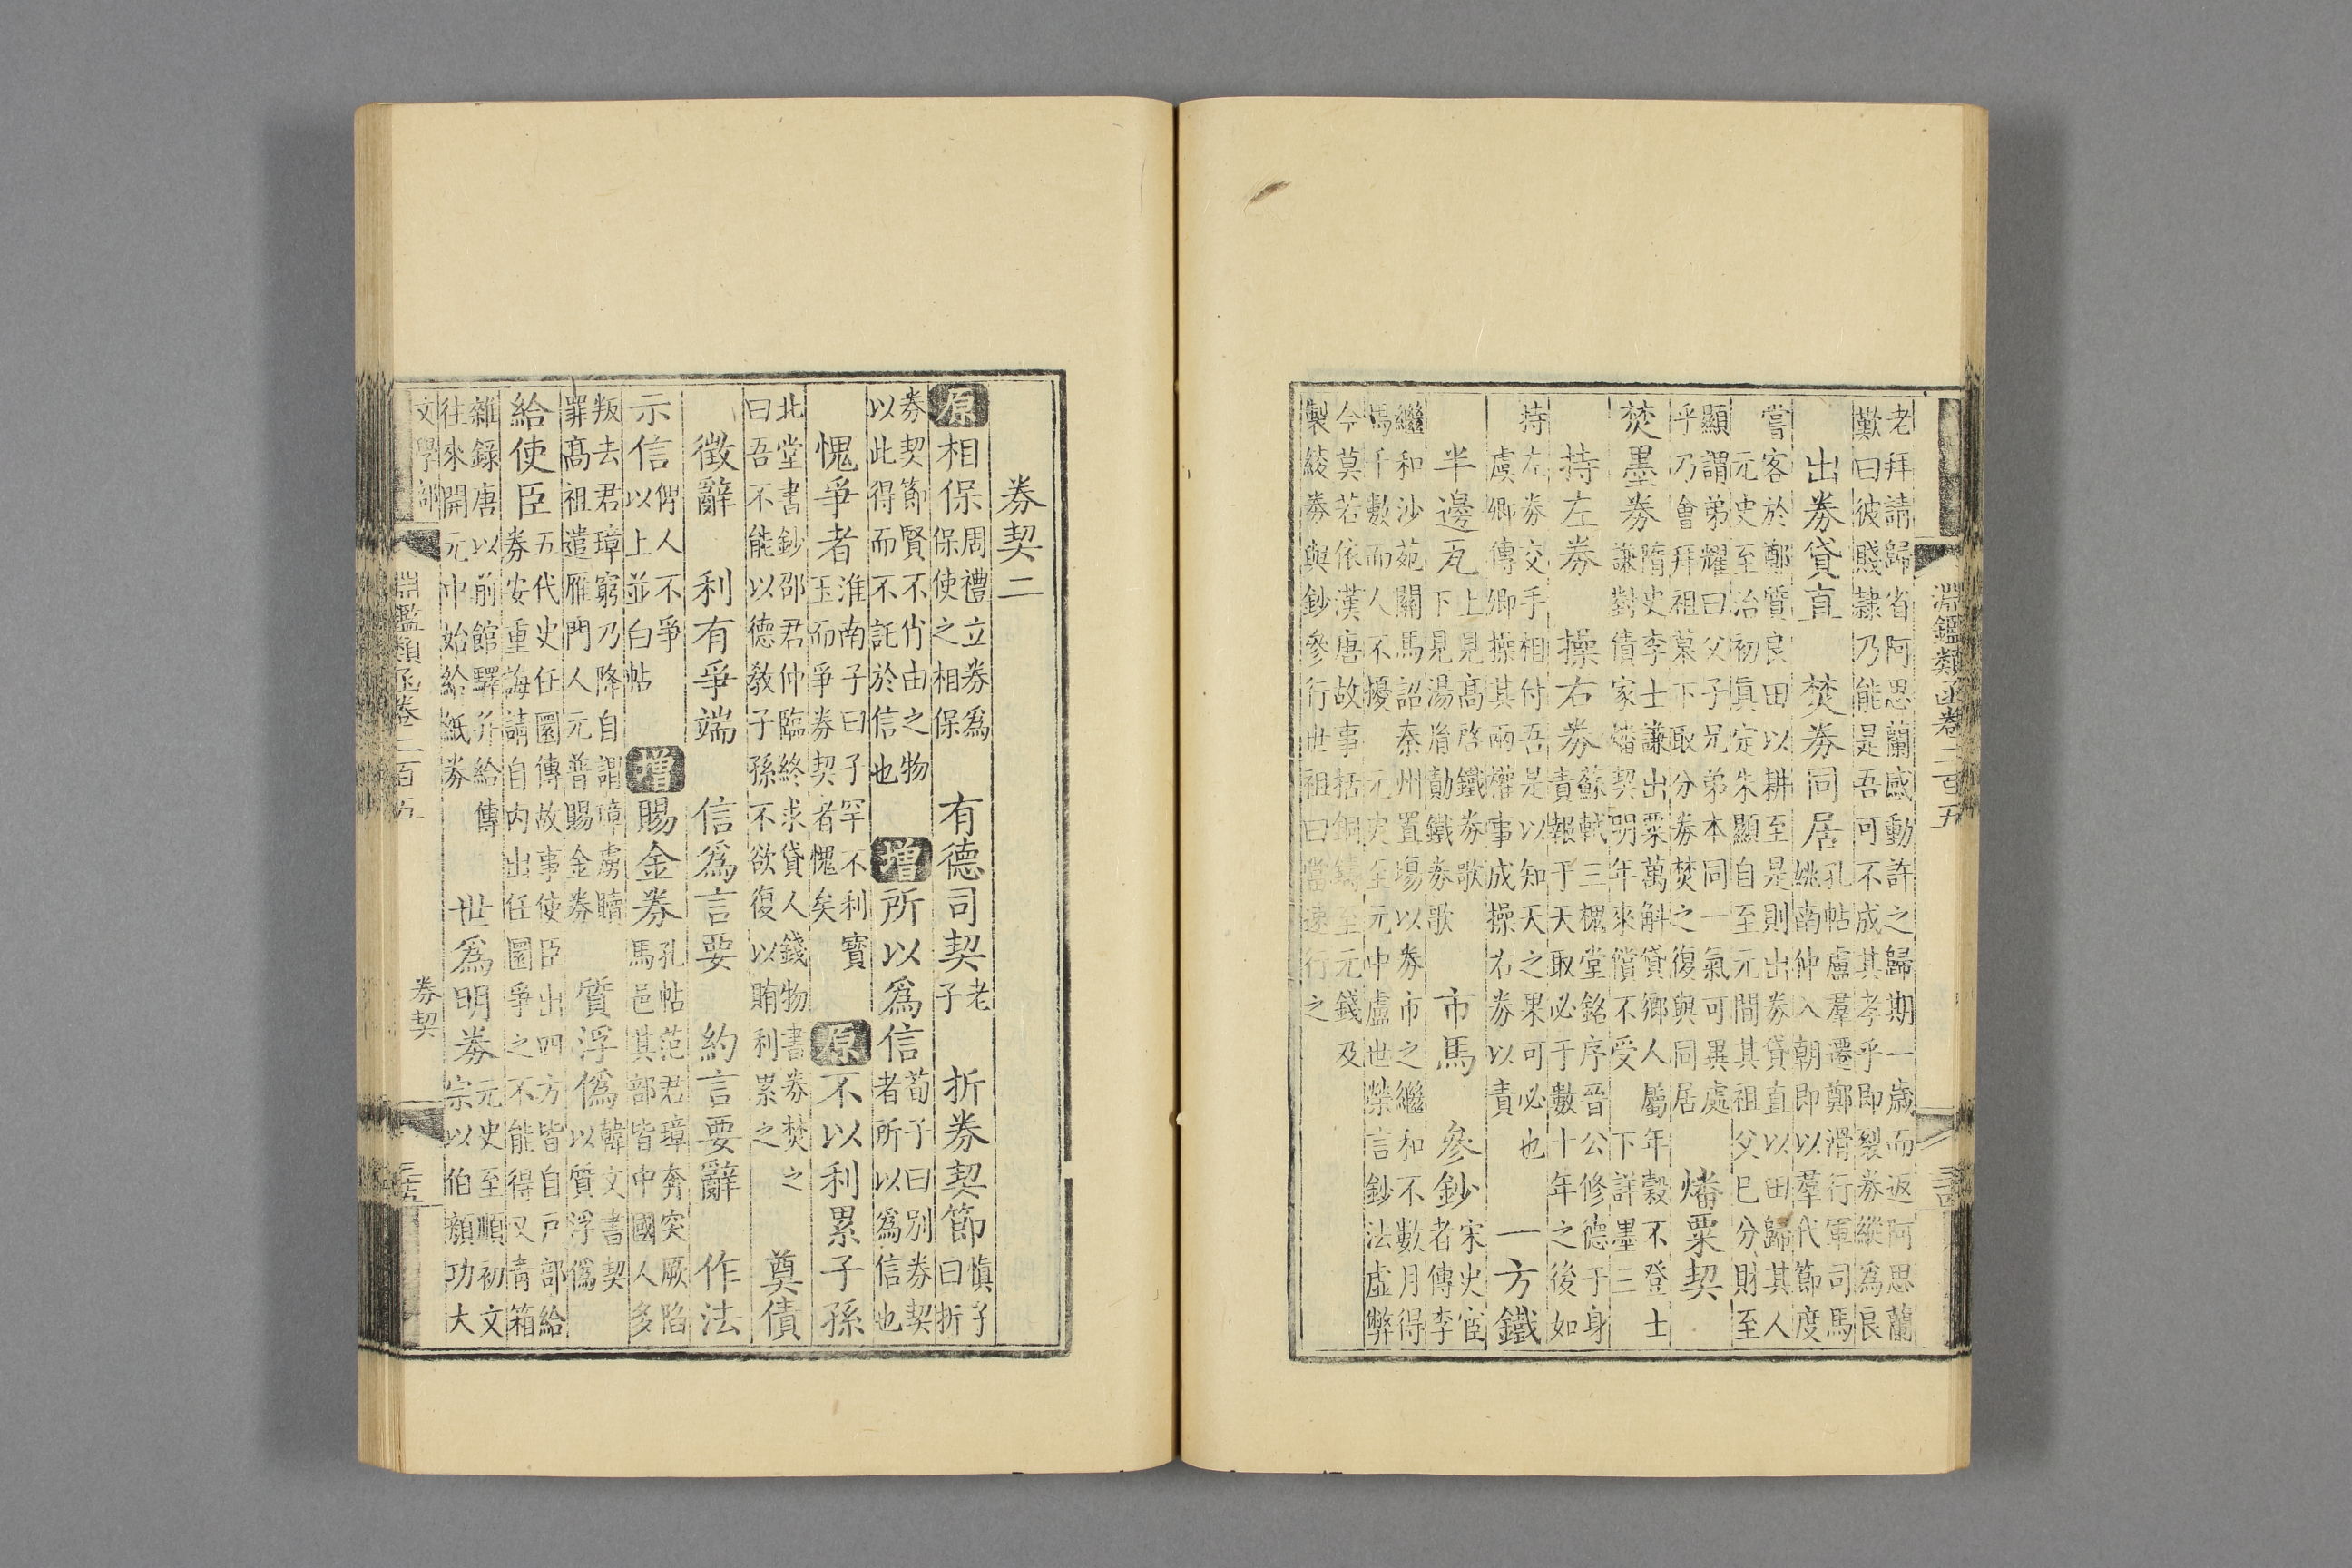 淵鑑類函卷二百五
老拜請歸省阿思蘭感動許之歸期一歲而返阿思蘭
歎曰彼賤隸乃能是吾可不成其孝乎即裂劵縱爲良
出劵貸直　焚劵同居
孔帖盧羣遷鄭滑行軍司馬
姚南仲入朝即以羣代節度
嘗客於鄭質良田以耕至是則出劵貸直以田歸其人
元史至治初眞定朱顯自至元間其祖父巳分財至
顯謂弟耀曰父子兄弟本同一氣可異處
乎乃會拜祖墓下取分劵焚之復與同居
燔粟契
焚墨劵
隋史李士謙出粟萬斛貸鄉人屬年穀不登士
謙對債家燔契明年來償不受　下詳墨三
持左劵　操右劵
蘇軾三槐堂銘序晉公修德于身
責報于天取必于數十年之後如
持左劵交手相付吾是以知天之果可必也
虞卿傳卿操其兩權事成操右劵以責
一方鐵
半邊瓦
上見高啓鐵劵歌
下見湯㣧勣鐵劵歌
市馬　參鈔
宋史宦
者傳李
繼和沙苑關馬詔秦州置場以劵市之繼和不數月得
馬千數而人不擾　元史至元中盧世榮言鈔法虛弊
今莫若依漢唐故事括銅鑄至元錢及
製綾劵與鈔參行世祖曰當遂行之
劵契二
原　相保
周禮立劵爲
保使之相保
有德司契
老
子
折劵契節
愼子
曰折
劵契節賢不肖由之物
以此得而不託於信也
增　所以爲信
荀子曰別劵契
者所以爲信也
愧爭者
淮南子曰子罕不利寶
玉而爭劵契者愧矣
原　不以利累子孫
北堂書鈔邵君仲臨終求貸人錢物書劵焚之
曰吾不能以德敎子孫不欲復以賄利累之
奠債
徵辭　利有爭端　信爲言要　約言要辭　作法
示信
俾人不爭
以上並白帖
增　賜金劵
孔帖范君璋奔突厥陷
馬邑其部皆中國人多
叛去君璋窮乃降自謂璋虜贖
罪高祖遣雁門人元普賜金劵
質浮僞
韓文書契
以質浮僞
給使臣
五代史任圜傳故事使臣出四方皆自戸部給
劵安重誨請自内出任圜爭之不能得又青箱
雜錄唐以前館驛并給傳
往來開元中始給紙劵
世爲明劵
元史至順初文
宗以伯顏功大
文學部
淵鑑類函卷二百五
劵契
二十五